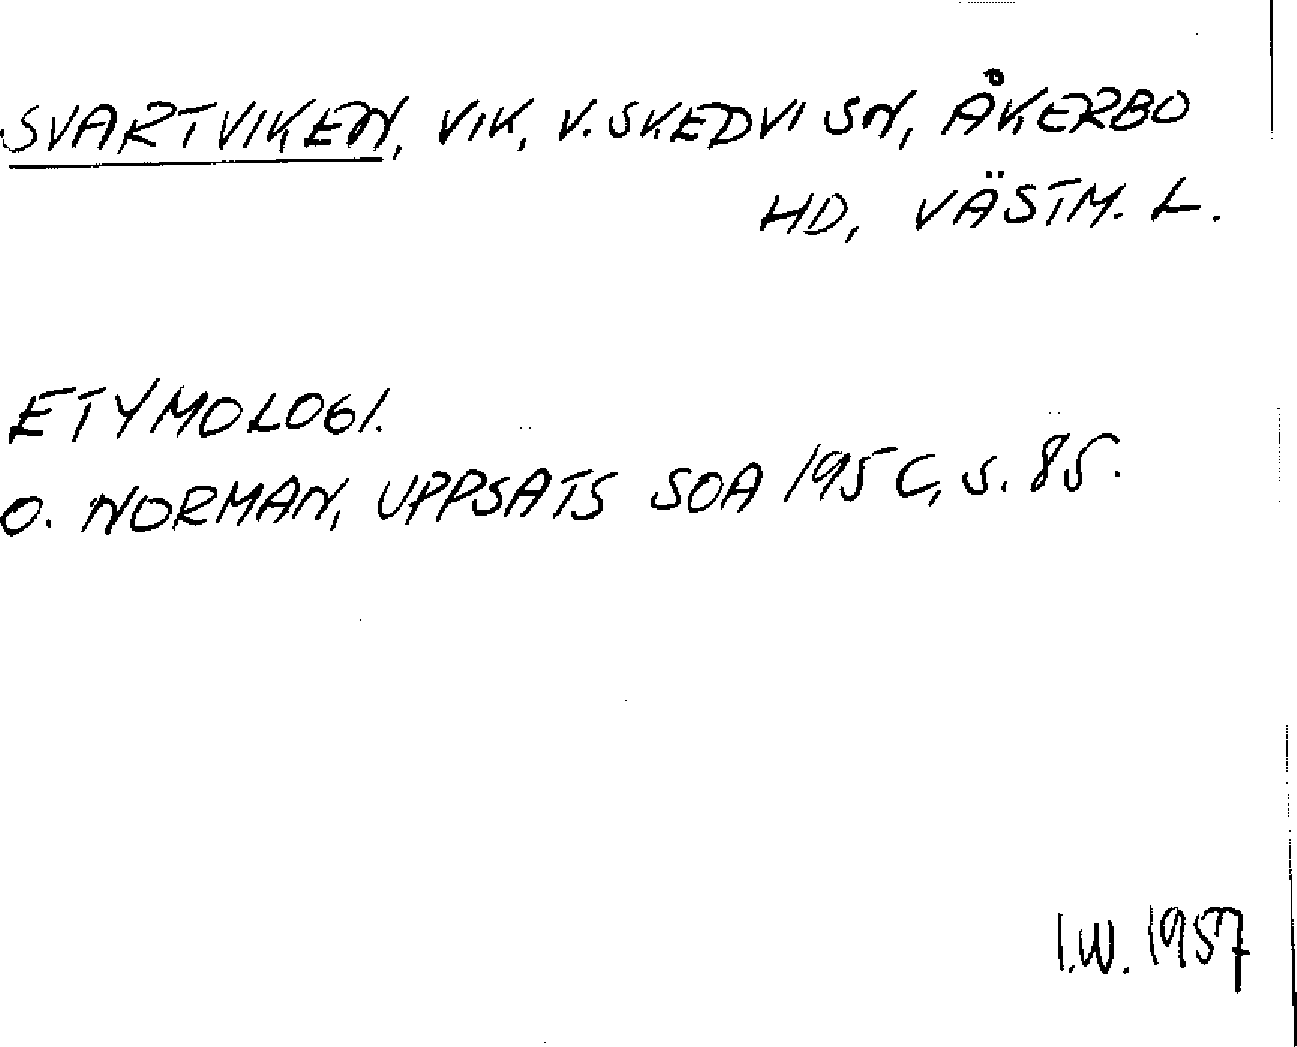 SVARTVIKEN, VIK, V. SKEDVI SN, ÅKERBO
HD, VÄSTM. L.
ETYMOLOGI.
O. NORMAN, UPPSATS SOA 195 C, S. 85.
I.W. 1957